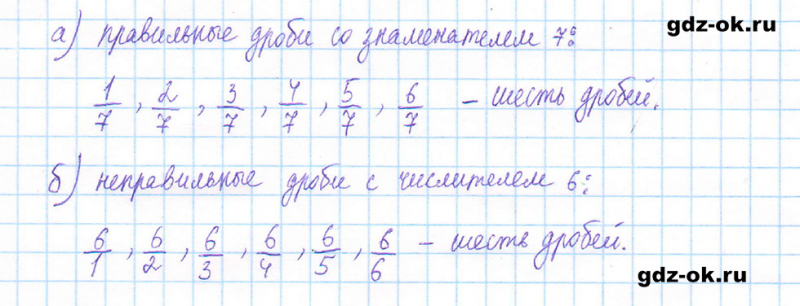 gdz-ok.ru
а) правильные дроби со знаменателем 7:
1/7, 2/7, 3/7, 4/7, 5/7, 6/7 – шесть дробей.
б) неправильные дроби с числителем 6:
6/1, 6/2, 6/3, 6/4, 6/5, 6/6 – шесть дробей.
gdz-ok.ru